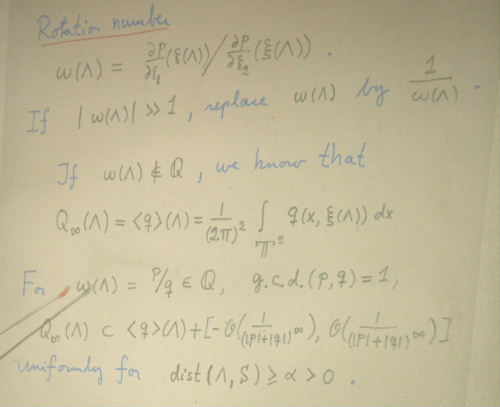 Rotation number
ω(Λ) = ∂p/∂ξ₁ (ξ(Λ)) / ∂p/∂ξ₂ (ξ(Λ)) .
If |ω(Λ)| ≫ 1 , replace ω(Λ) by 1/ω(Λ) .
If ω(Λ) ∉ Q , we know that
Q∞(Λ) = <q>(Λ) = 1/(2π)² ∫_𝕋² q(x, ξ(Λ)) dx
For ω(Λ) = p/q ∈ Q, g.c.d. (p, q) = 1,
Q∞(Λ) ⊂ <q>(Λ) + [-O(1/(|p|+|q|)^∞), O(1/(|p|+|q|)^∞)]
uniformly for dist(Λ, S) ≥ α > 0 .